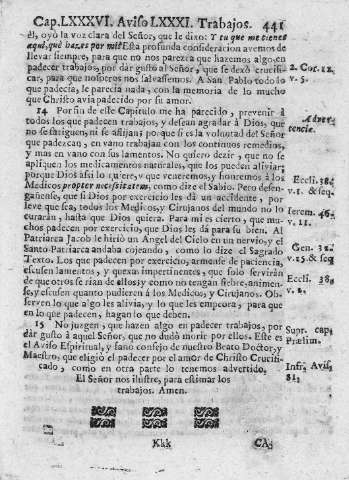 Cap. LXXXVI. Aviso LXXXI. Trabajos. 441
él, oyò la voz clara del Señor, que le dixo: Y tu que me tienes
aqui, què hazes por mi? Esta profunda consideracion avemos de
llevar siempre, para que no nos parezca que hazemos algo en
padecer trabajos, por dàr gusto al Señor, que se dexò crucifi-
car, para que nosotros nos salvassemos. A San Pablo todo lo
que padecia, le parecia nada, con la memoria de lo mucho
que Christo avia padecido por su amor.
2. Cor. 12.
v. 5.
14 Por fin de este Capitulo me ha parecido, prevenir à
todos los que padecen trabajos, y desean agradar à Dios, que
no se fatiguen, ni se aflijan; porque si es la voluntad del Señor
que padezcan, en vano trabajan con los continuos remedios,
y mas en vano con sus lamentos. No quiero dezir, que no se
apliquen los medicamentos naturales, que los pueden aliviar;
porque Dios assi lo quiere, y que veneremos, y honremos à los
Medicos, propter necessitatem, como dize el Sabio. Pero desen-
gañense, que si Dios por exercicio les dà un accidente, por
leve que sea, todos los Medicos, y Cirujanos del mundo no lo
curaràn, hasta que Dios quiera. Para mi es cierto, que mu-
chos padecen por exercicio, que Dios les dà para su bien. Al
Patriarca Jacob le hiriò un Angel del Cielo en un nervio, y el
Santo Patriarca andaba cojeando, como lo dize el Sagrado
Texto. Los que padecen por exercicio, armense de paciencia,
escusen lamentos, y quexas impertinentes, que solo serviràn
de que otros se rian de ellos; y como no tengan fiebre, animen-
se, y escusen quanto pudieren à los Medicos, y Cirujanos. Ob-
serven lo que algo les alivia, y lo que les empeora, y para que
en lo que padecen, hagan lo que deben.
Adver-
tencia.
Eccli. 38.
v. 1. & seq.
Ierem. 46.
v. 11.
Gen. 32.
v. 25. & seq
Eccli. 38.
v. 2.
15 No juzgen, que hazen algo en padecer trabajos, por
dàr gusto à aquel Señor, que no dudò morir por ellos. Este es
el Aviso Espiritual, y sano consejo de nuestro Beato Doctor, y
Maestro, que eligiò el padecer por el amor de Christo Crucifi-
cado, como en otra parte lo tenemos advertido.
El Señor nos ilustre, para estimar los
trabajos. Amen.
Supr. cap.
Prælim.
Infr. Avis.
81.
Kkk
CA-